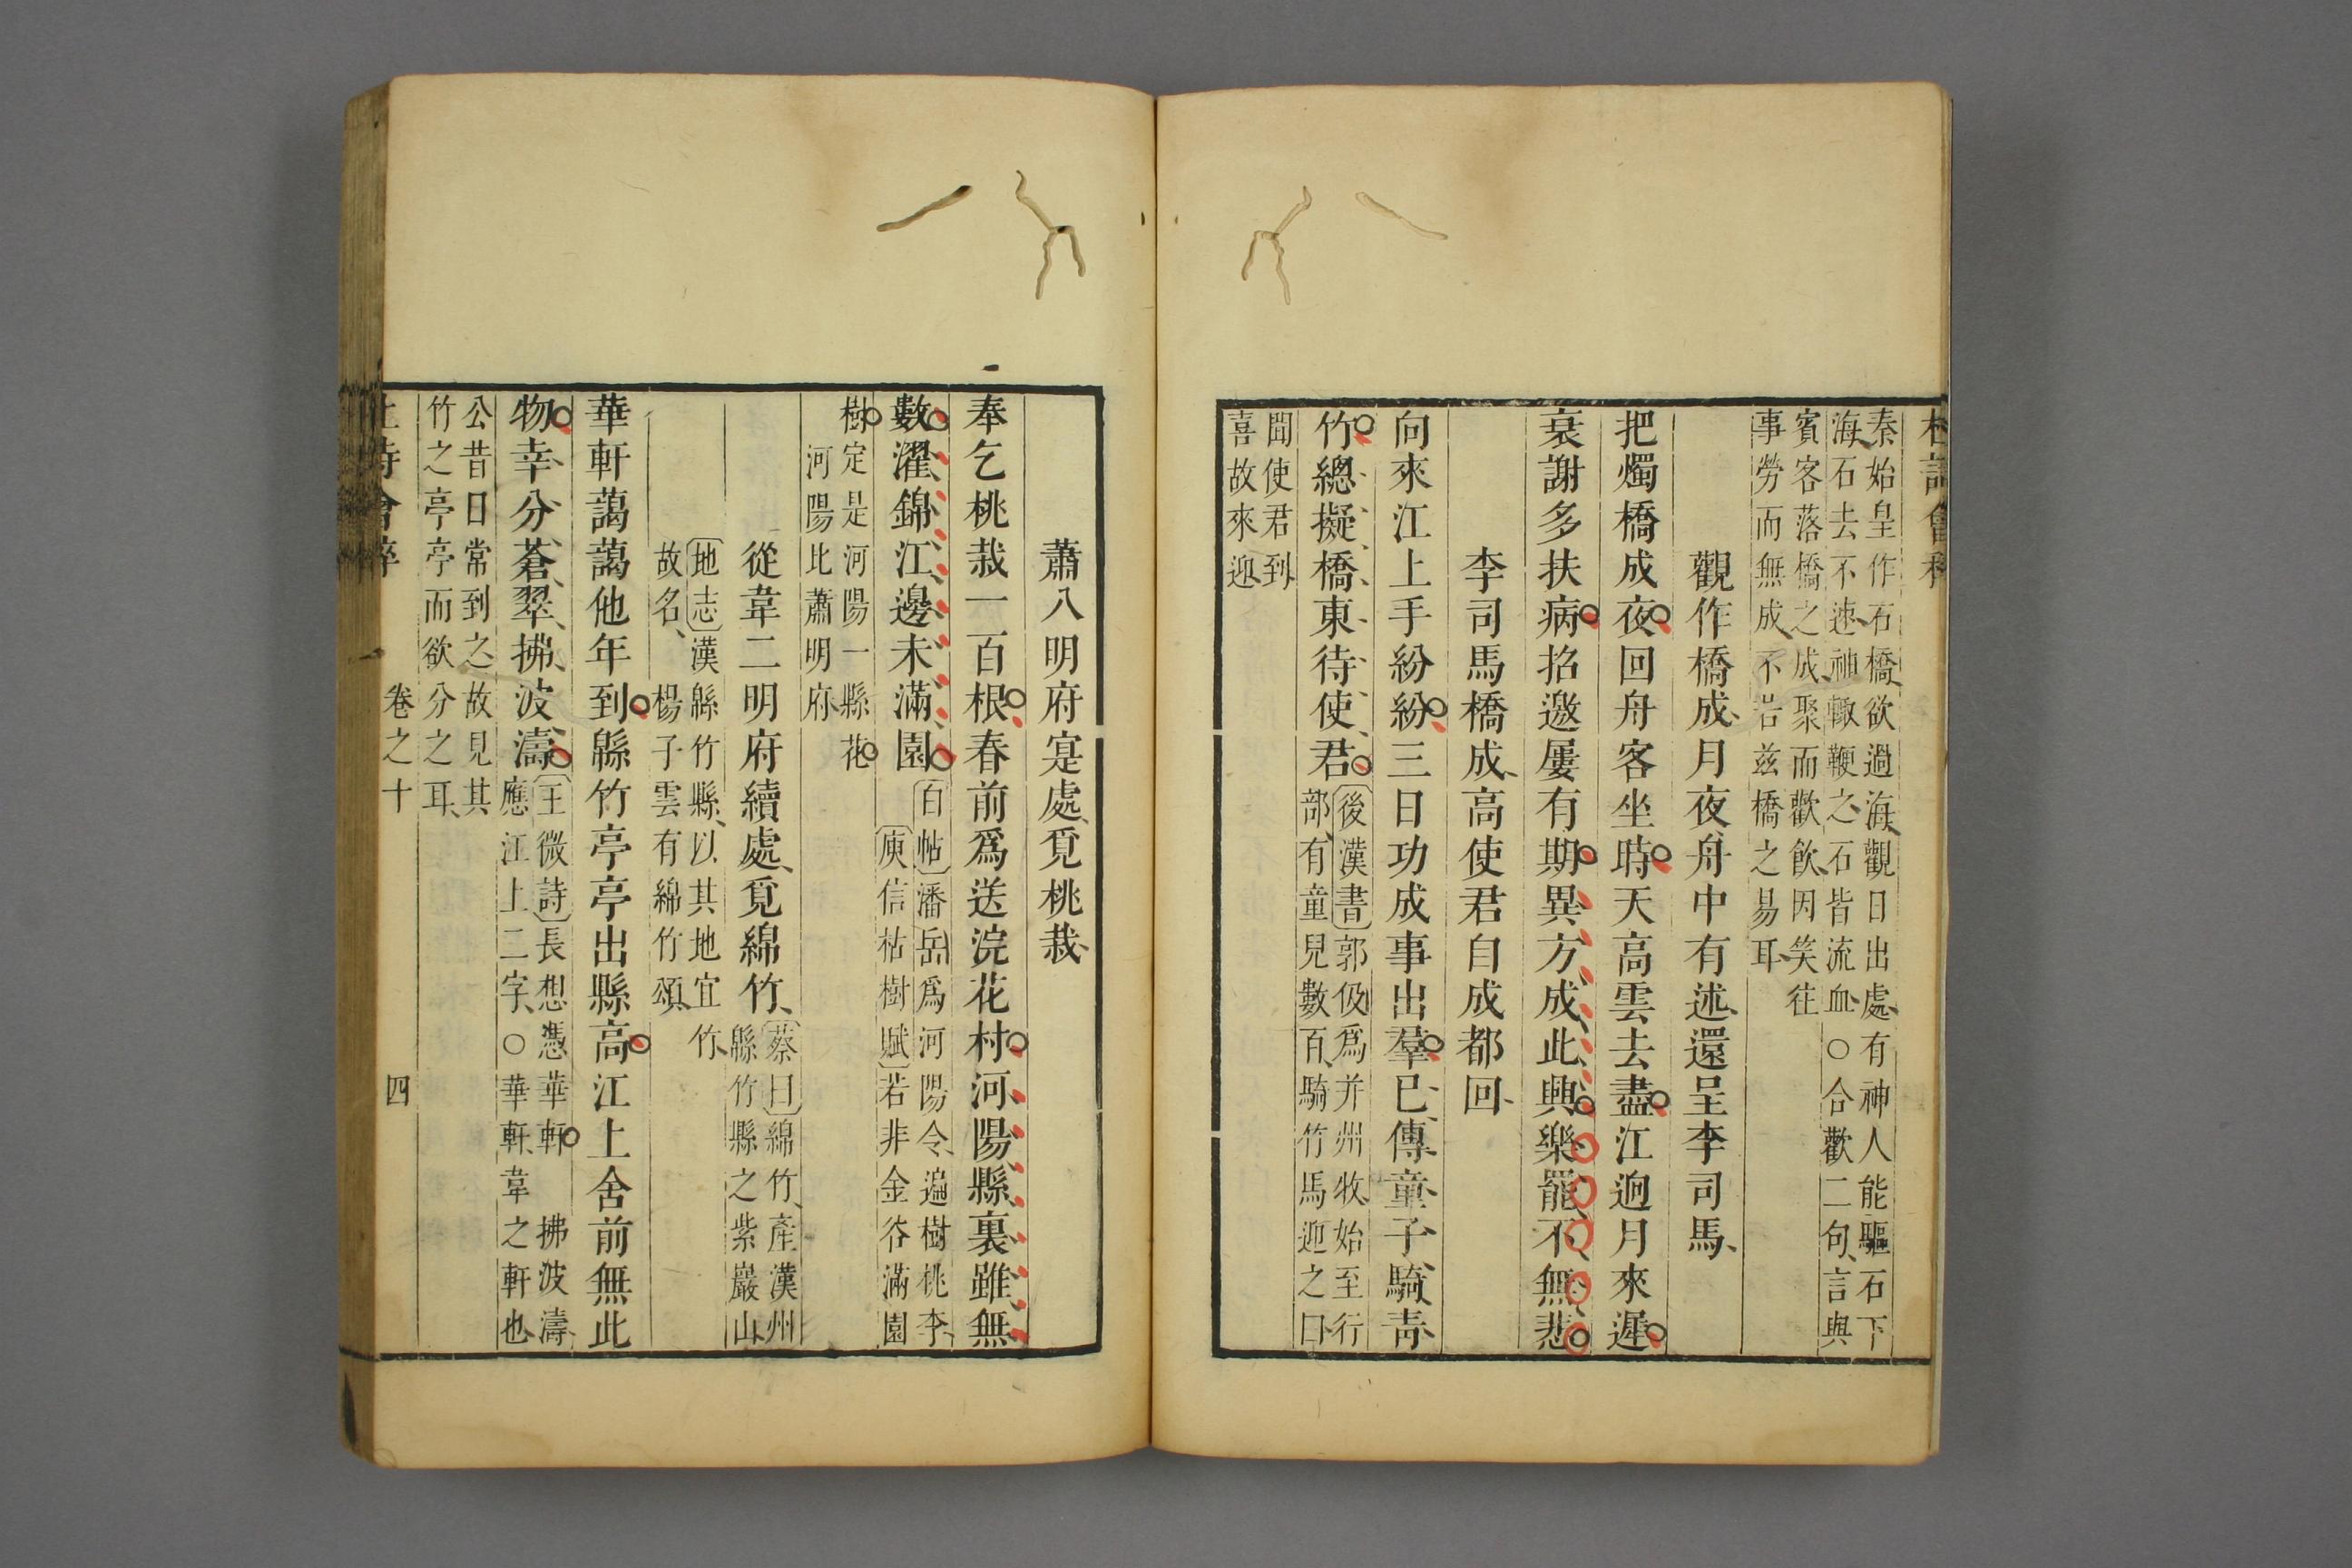 秦始皇作石橋欲過海觀日出處有神人能驅石下
海石去不速神輙鞭之石皆流血○合歡二句言與
賓客落橋之成聚而歡飲因笑往
事勞而無成不若玆橋之易耳
觀作橋成月夜舟中有述還呈李司馬
把燭橋成夜回舟客坐時天高雲去盡江逈月來遲
衰謝多扶病招邀屢有期異方成此興樂罷不無悲
李司馬橋成高使君自成都回
向來江上手紛紛三日功成事出羣已傳童子騎靑
竹總擬橋東待使君
後漢書郭伋爲并州牧始至行
部有童兒數百騎竹馬迎之曰
聞使君到
喜故來迎
蕭八明府寔處覓桃栽
奉乞桃栽一百根春前爲送浣花村河陽縣裏雖無
數濯錦江邊未滿園
白帖潘岳爲河陽令遍樹桃李
庾信枯樹賦若非金谷滿園
樹定是河陽一縣花
河陽比蕭明府
從韋二明府續處覓綿竹
蔡曰綿竹產漢州
緜竹縣之紫巖山
地志漢緜竹縣以其地宜竹
故名楊子雲有綿竹頌
華軒藹藹他年到緜竹亭亭出縣高江上舍前無此
物幸分蒼翠拂波濤
王微詩長想憑華軒 拂波濤
應江上二字○華軒韋之軒也
公昔日常到之故見其
竹之亭亭而欲分之耳
卷之十 四